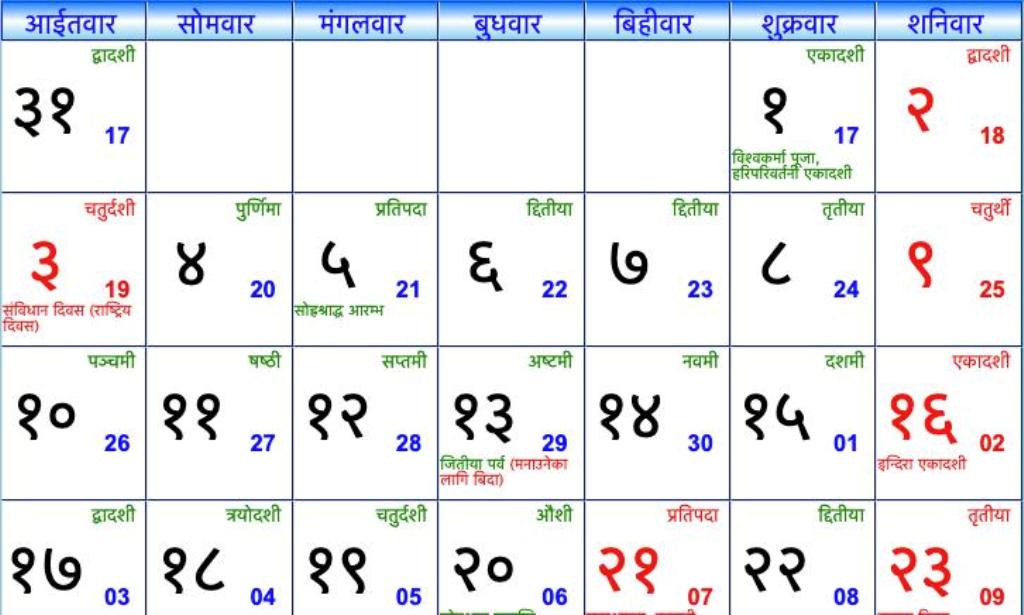 आईतवार सोमवार मंगलवार बुधवार बिहीवार शुक्रवार शनिवार
द्वादशी एकादशी द्वादशी
३१ 17 १ 17 २ 18
विश्वकर्मा पूजा,
हरिपरिवर्तनी एकादशी
चतुर्दशी पुर्णिमा प्रतिपदा द्दितीया द्दितीया तृतीया चतुर्थी
३ 19 ४ 20 ५ 21 ६ 22 ७ 23 ८ 24 ९ 25
संविधान दिवस (राष्ट्रिय सोह्रश्राद्ध आरम्भ
दिवस)
पञ्चमी षष्ठी सप्तमी अष्टमी नवमी दशमी एकादशी
१० 26 ११ 27 १२ 28 १३ 29 १४ 30 १५ 01 १६ 02
जितीया पर्व (मनाउनेका इन्दिरा एकादशी
लागि बिदा)
द्वादशी त्रयोदशी चतुर्दशी औशी प्रतिपदा द्दितीया तृतीया
१७ 03 १८ 04 १९ 05 २० 06 २१ 07 २२ 08 २३ 09